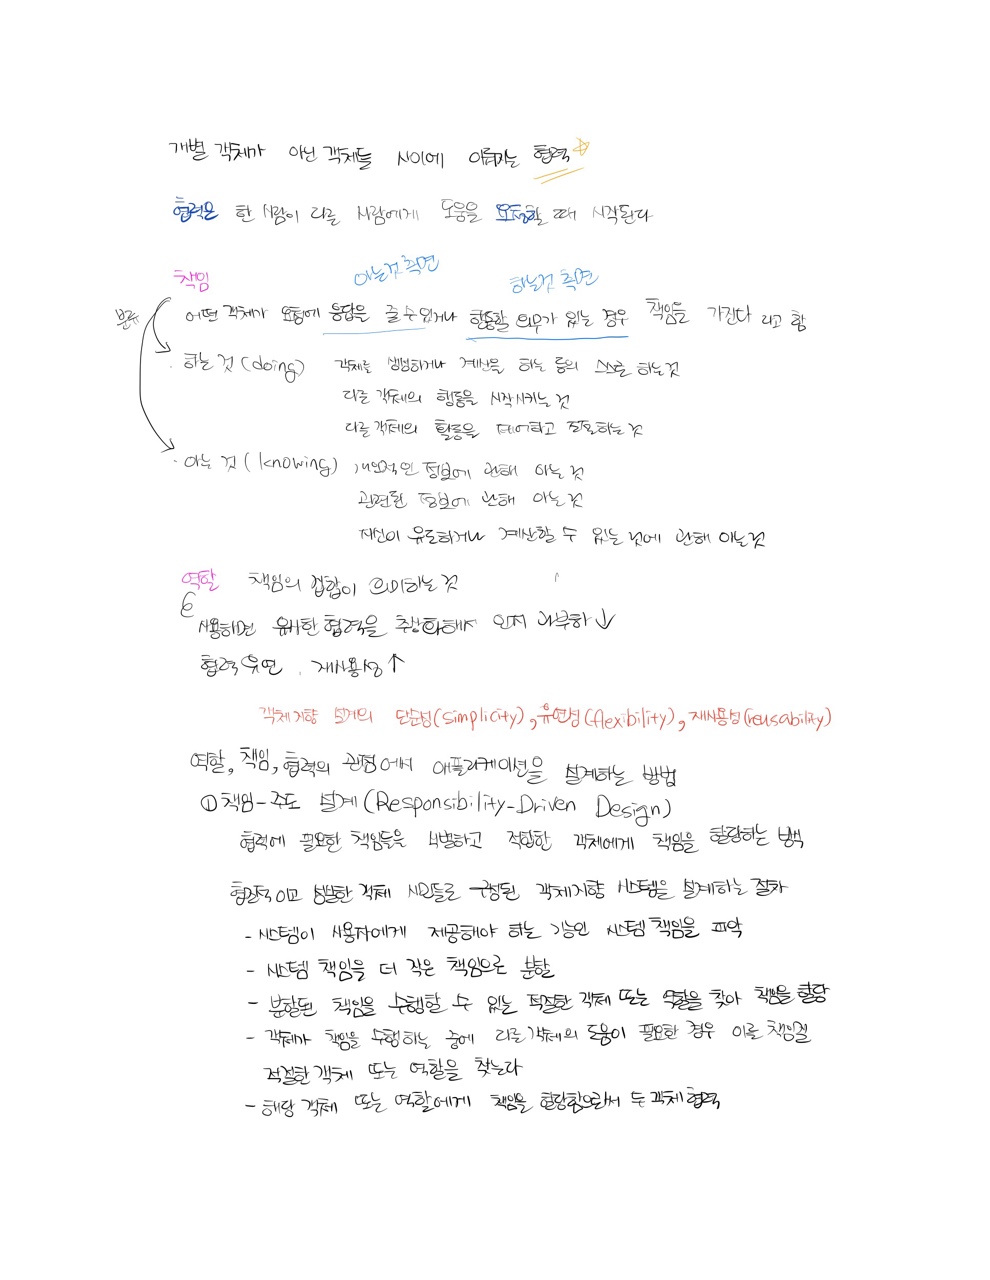 개별 객체가 아닌 객체들 사이에 이뤄지는 협력
협력은 한 사람이 다른 사람에게 도움을 요청할 때 시작된다
책임 아는것 측면 하는것 측면
분류 어떤 객체가 요청에 응답을 줄 수 있거나 행동할 의무가 있는 경우 책임을 가진다 라고 함
· 하는 것 (doing) 객체를 생성하거나 계산을 하는 등의 스스로 하는것
다른 객체의 행동을 시작시키는 것
다른 객체의 활동을 제어하고 조율하는 것
· 아는 것 (knowing) 개인적인 정보에 관해 아는 것
관련된 정보에 관해 아는 것
자신이 유도하거나 계산할 수 있는 것에 관해 아는 것
역할 책임의 집합이 의미하는 것
사용하면 유사한 협력을 추상화해서 인지 과부하 ↓
협력 유연, 재사용성 ↑
객체지향 설계의 단순성(simplicity), 유연성(flexibility), 재사용성(reusability)
역할, 책임, 협력의 관점에서 애플리케이션을 설계하는 방법
① 책임-주도 설계 (Responsibility-Driven Design)
협력에 필요한 책임들을 식별하고 적합한 객체에게 책임을 할당하는 방식
협력적이고 성실한 객체 시민들로 구성된 객체지향 시스템을 설계하는 절차
- 시스템이 사용자에게 제공해야 하는 기능인 시스템 책임을 파악
- 시스템 책임을 더 작은 책임으로 분할
- 분할된 책임을 수행할 수 있는 적절한 객체 또는 역할을 찾아 책임을 할당
- 객체가 책임을 수행하는 중에 다른 객체의 도움이 필요한 경우 이를 책임질
적절한 객체 또는 역할을 찾는다
- 해당 객체 또는 역할에게 책임을 할당함으로써 두 객체 협력